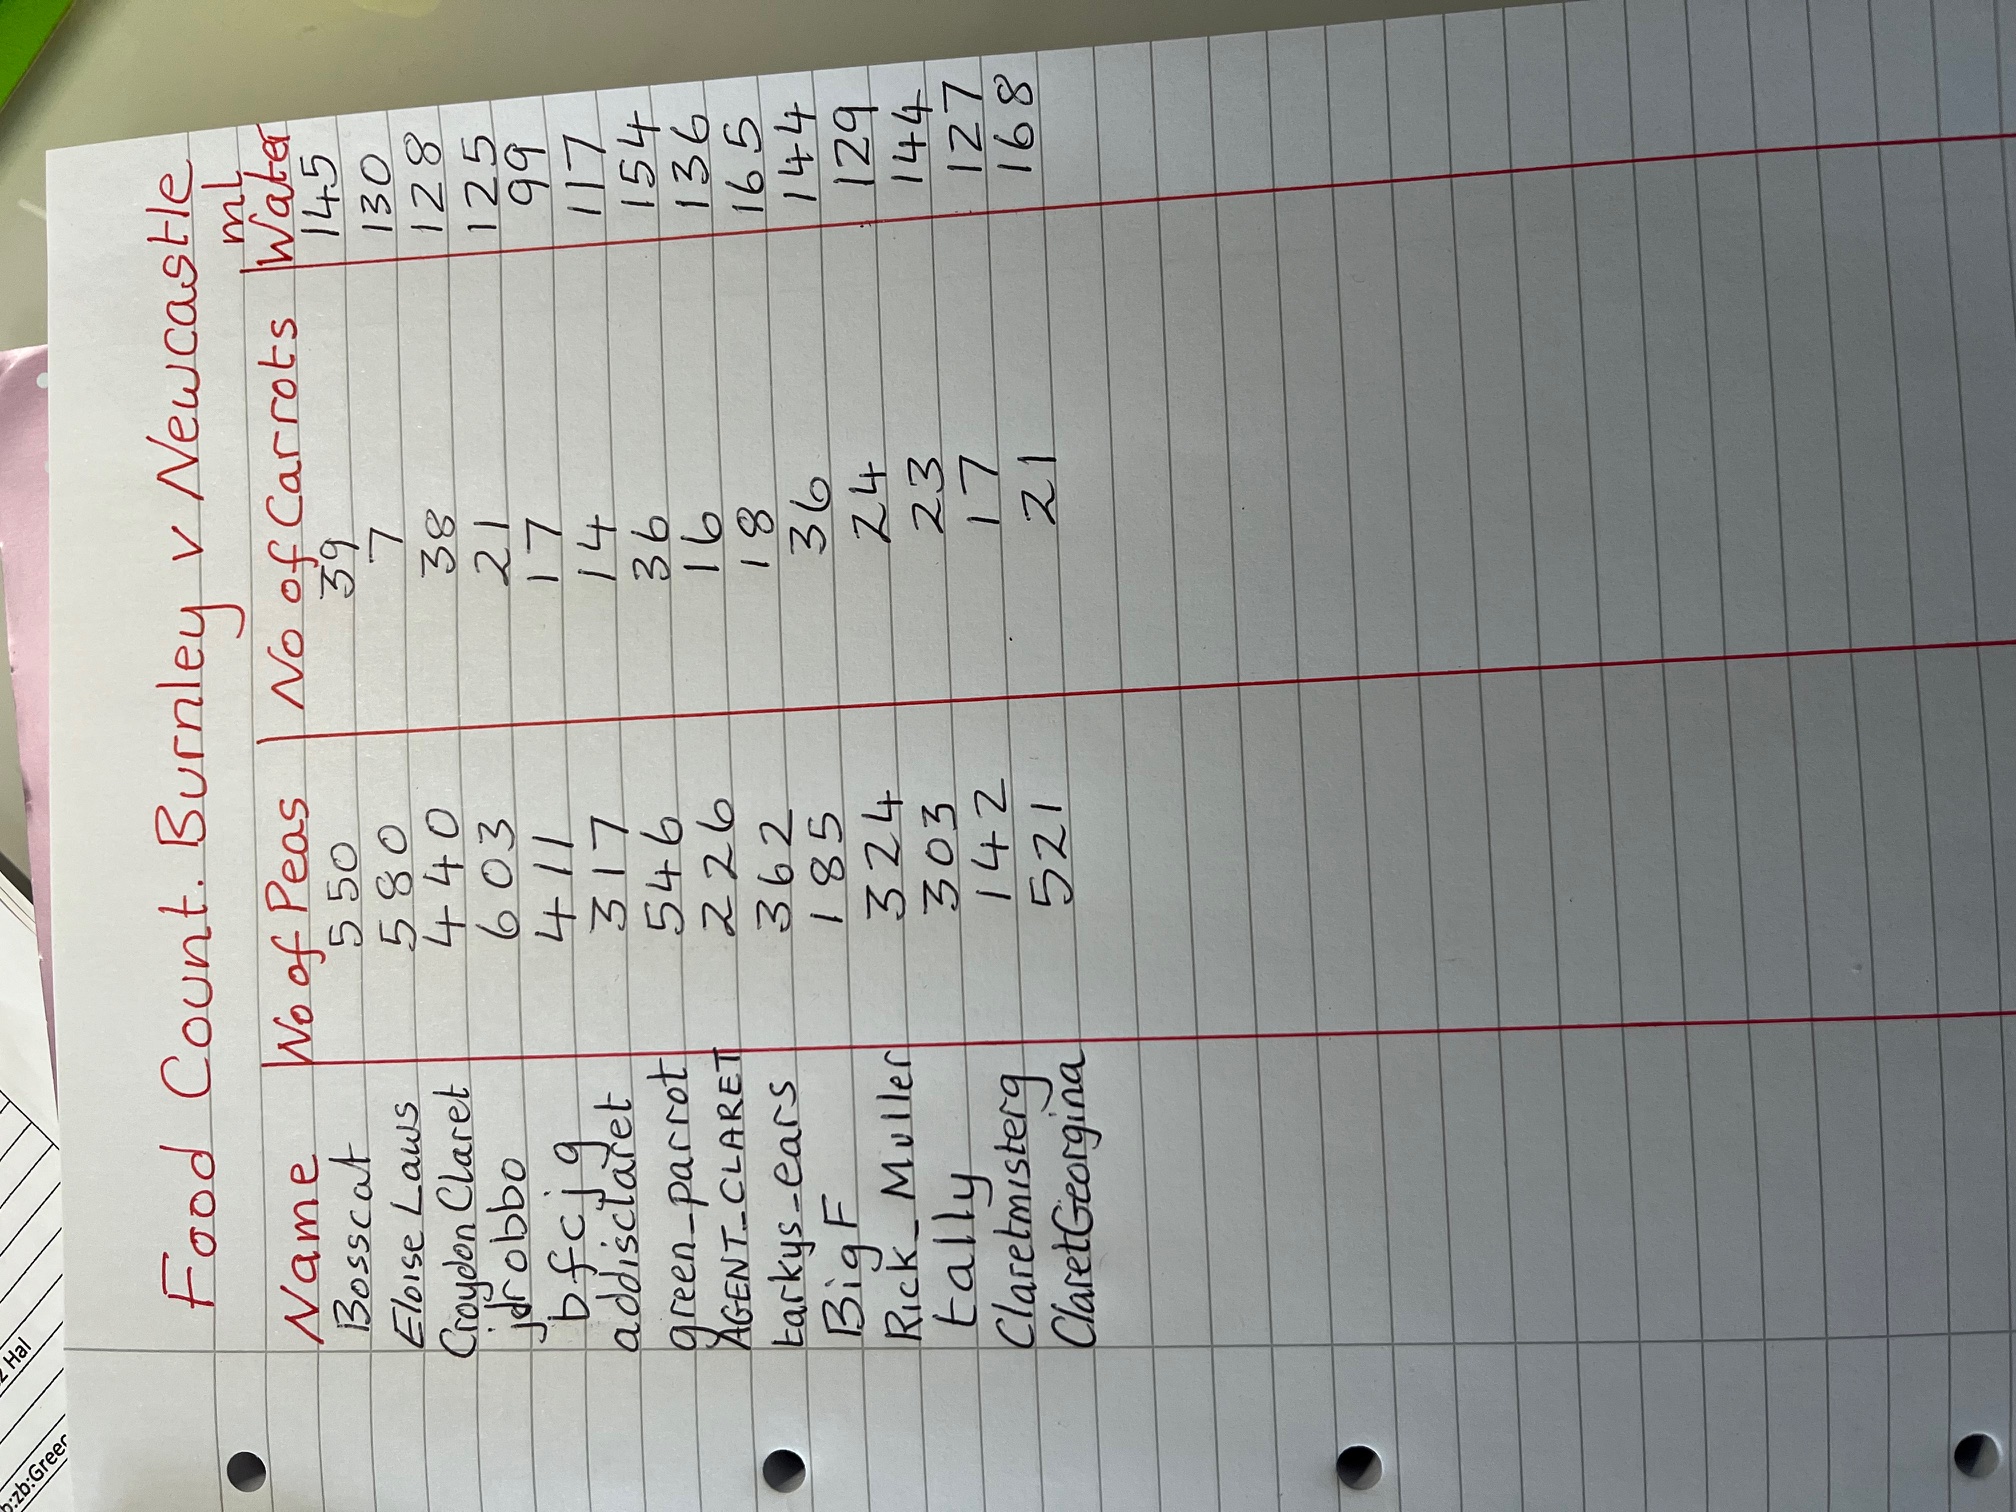 Food Count. Burnley v Newcastle
Name No of Peas No of Carrots mL Water
Bosscat 550 39 145
Eloise Laws 580 7 130
Croydon Claret 440 38 128
jdrobbo 603 21 125
bfcjg 411 17 99
addisclaret 317 14 117
green_parrot 546 36 154
AGENT_CLARET 226 16 136
tarkys_ears 362 18 165
Big F 185 36 144
Rick_Muller 324 24 129
tally 303 23 144
Claretmisterg 142 17 127
ClaretGeorgina 521 21 168
z Hal
b:zb:Green